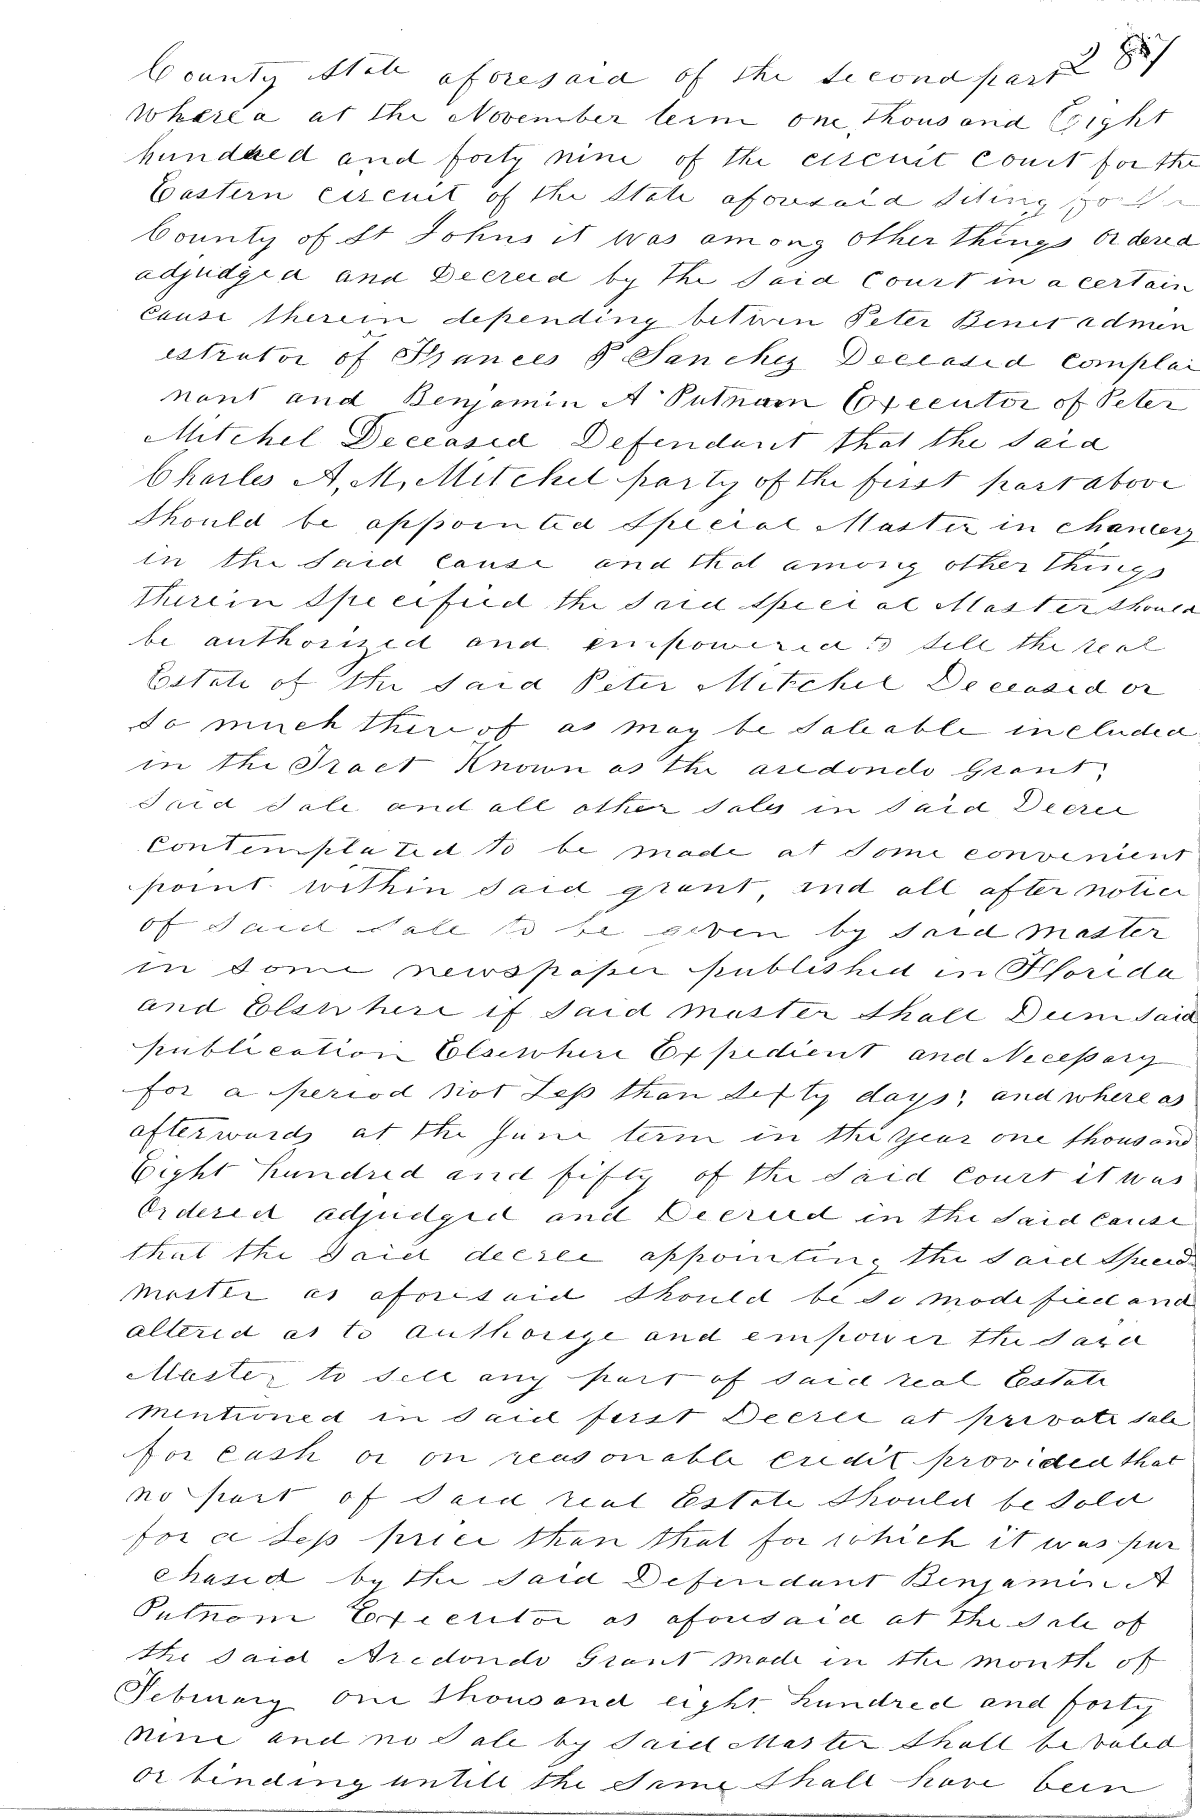 287
County State aforesaid of the second part
wherea at the November term one thousand Eight
hundred and forty nine of the circuit court for the
Eastern circuit of the State aforesaid siting for the
County of St Johns it was among other things ordered
adjudged and Decreed by the said Court in a certain
cause therein depending between Peter Benet admin
estrator of Frances P Sanchez Deceased complai
nant and Benjamin A Putnam Executor of Peter
Mitchel Deceased Defendant that the said
Charles A, M, Mitchel party of the first part above
should be appointed special Master in chancery
in the said cause and that among other things
therein specified the said special Master should
be authorized and empowered to sell the real
Estate of the said Peter Mitchel Deceased or
so much there of as may be saleable included
in the Tract Known as the aredondo Grant;
said sale and all other sales in said Decree
contemplated to be made at some convenient
point within said grant, and all after notice
of said sale to be given by said master
in some newspaper published in Florida
and Elswhere if said master shall Deem said
publication Elsewhere Expedient and Necessary
for a period not Less than sixty days; and where as
afterwards at the June term in the year one thousand
Eight hundred and fifty of the said court it was
Ordered adjudged and Decreed in the said cause
that the said decree appointing the said Special
master as aforesaid should be so modefied and
altered as to authorize and empower the said
Master to sell any part of said real Estate
mentioned in said first Decree at private sale
for cash or on reasonable credit provided that
no part of said real Estate should be sold
for a Less price than that for which it was pur
chased by the said Defendant Benjamin A
Putnam Executor as aforesaid at the sale of
the said Aredondo Grant made in the month of
February one thousand eight hundred and forty
nine and no sale by said Master shall be valed
or binding untill the same shall have been